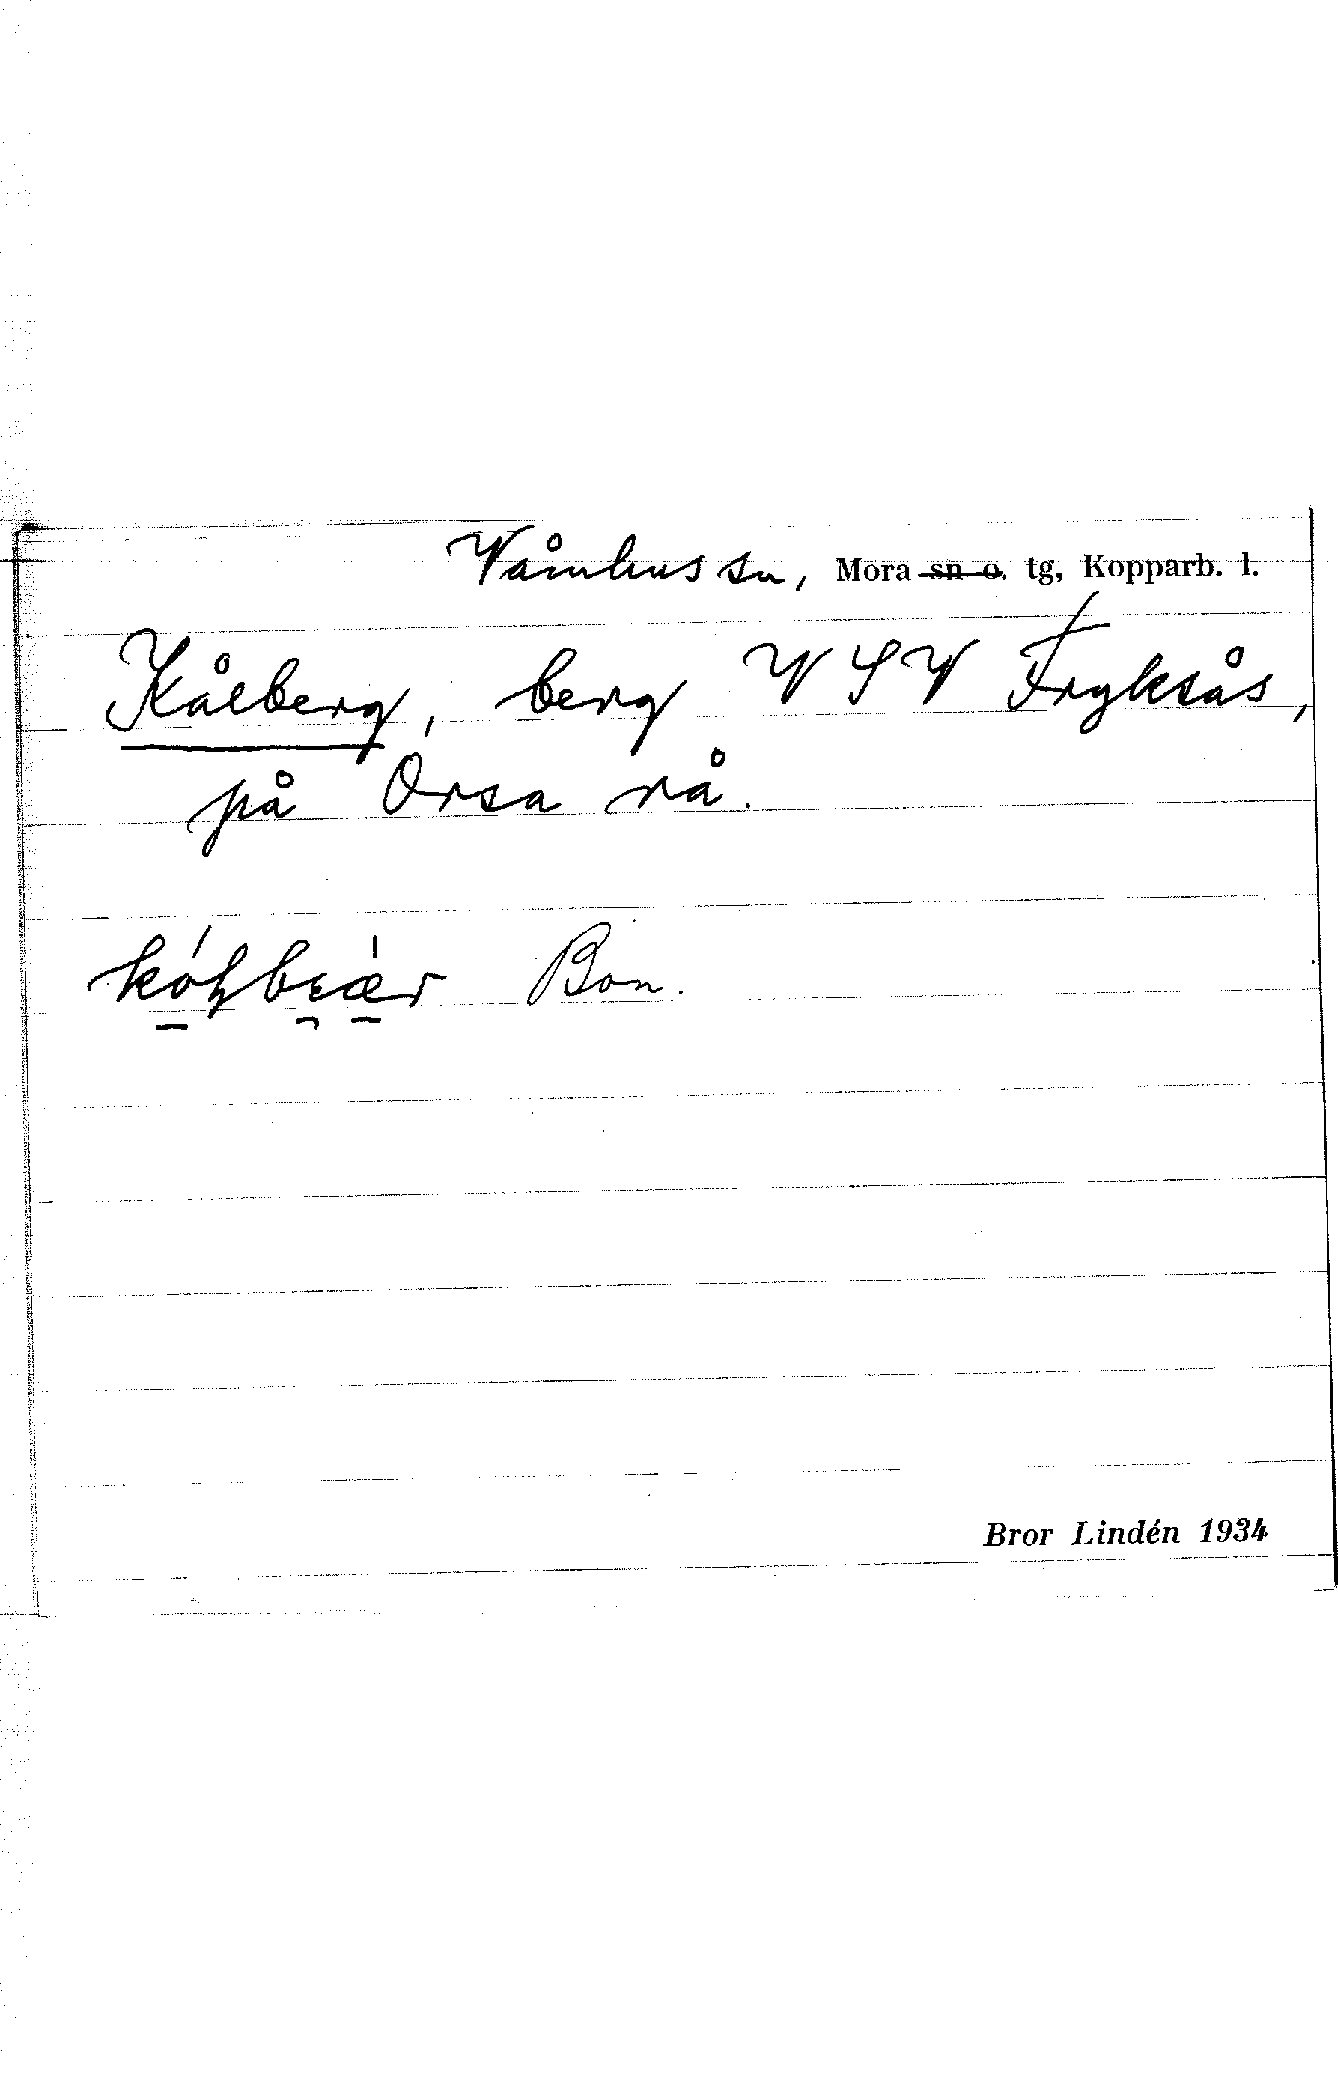 Våmhus sn, Mora sn o. tg, Kopparb. l.
Kålberg, berg VSV Fryksås,
på Orsa rå.
Bon.
Bror Lindén 1934